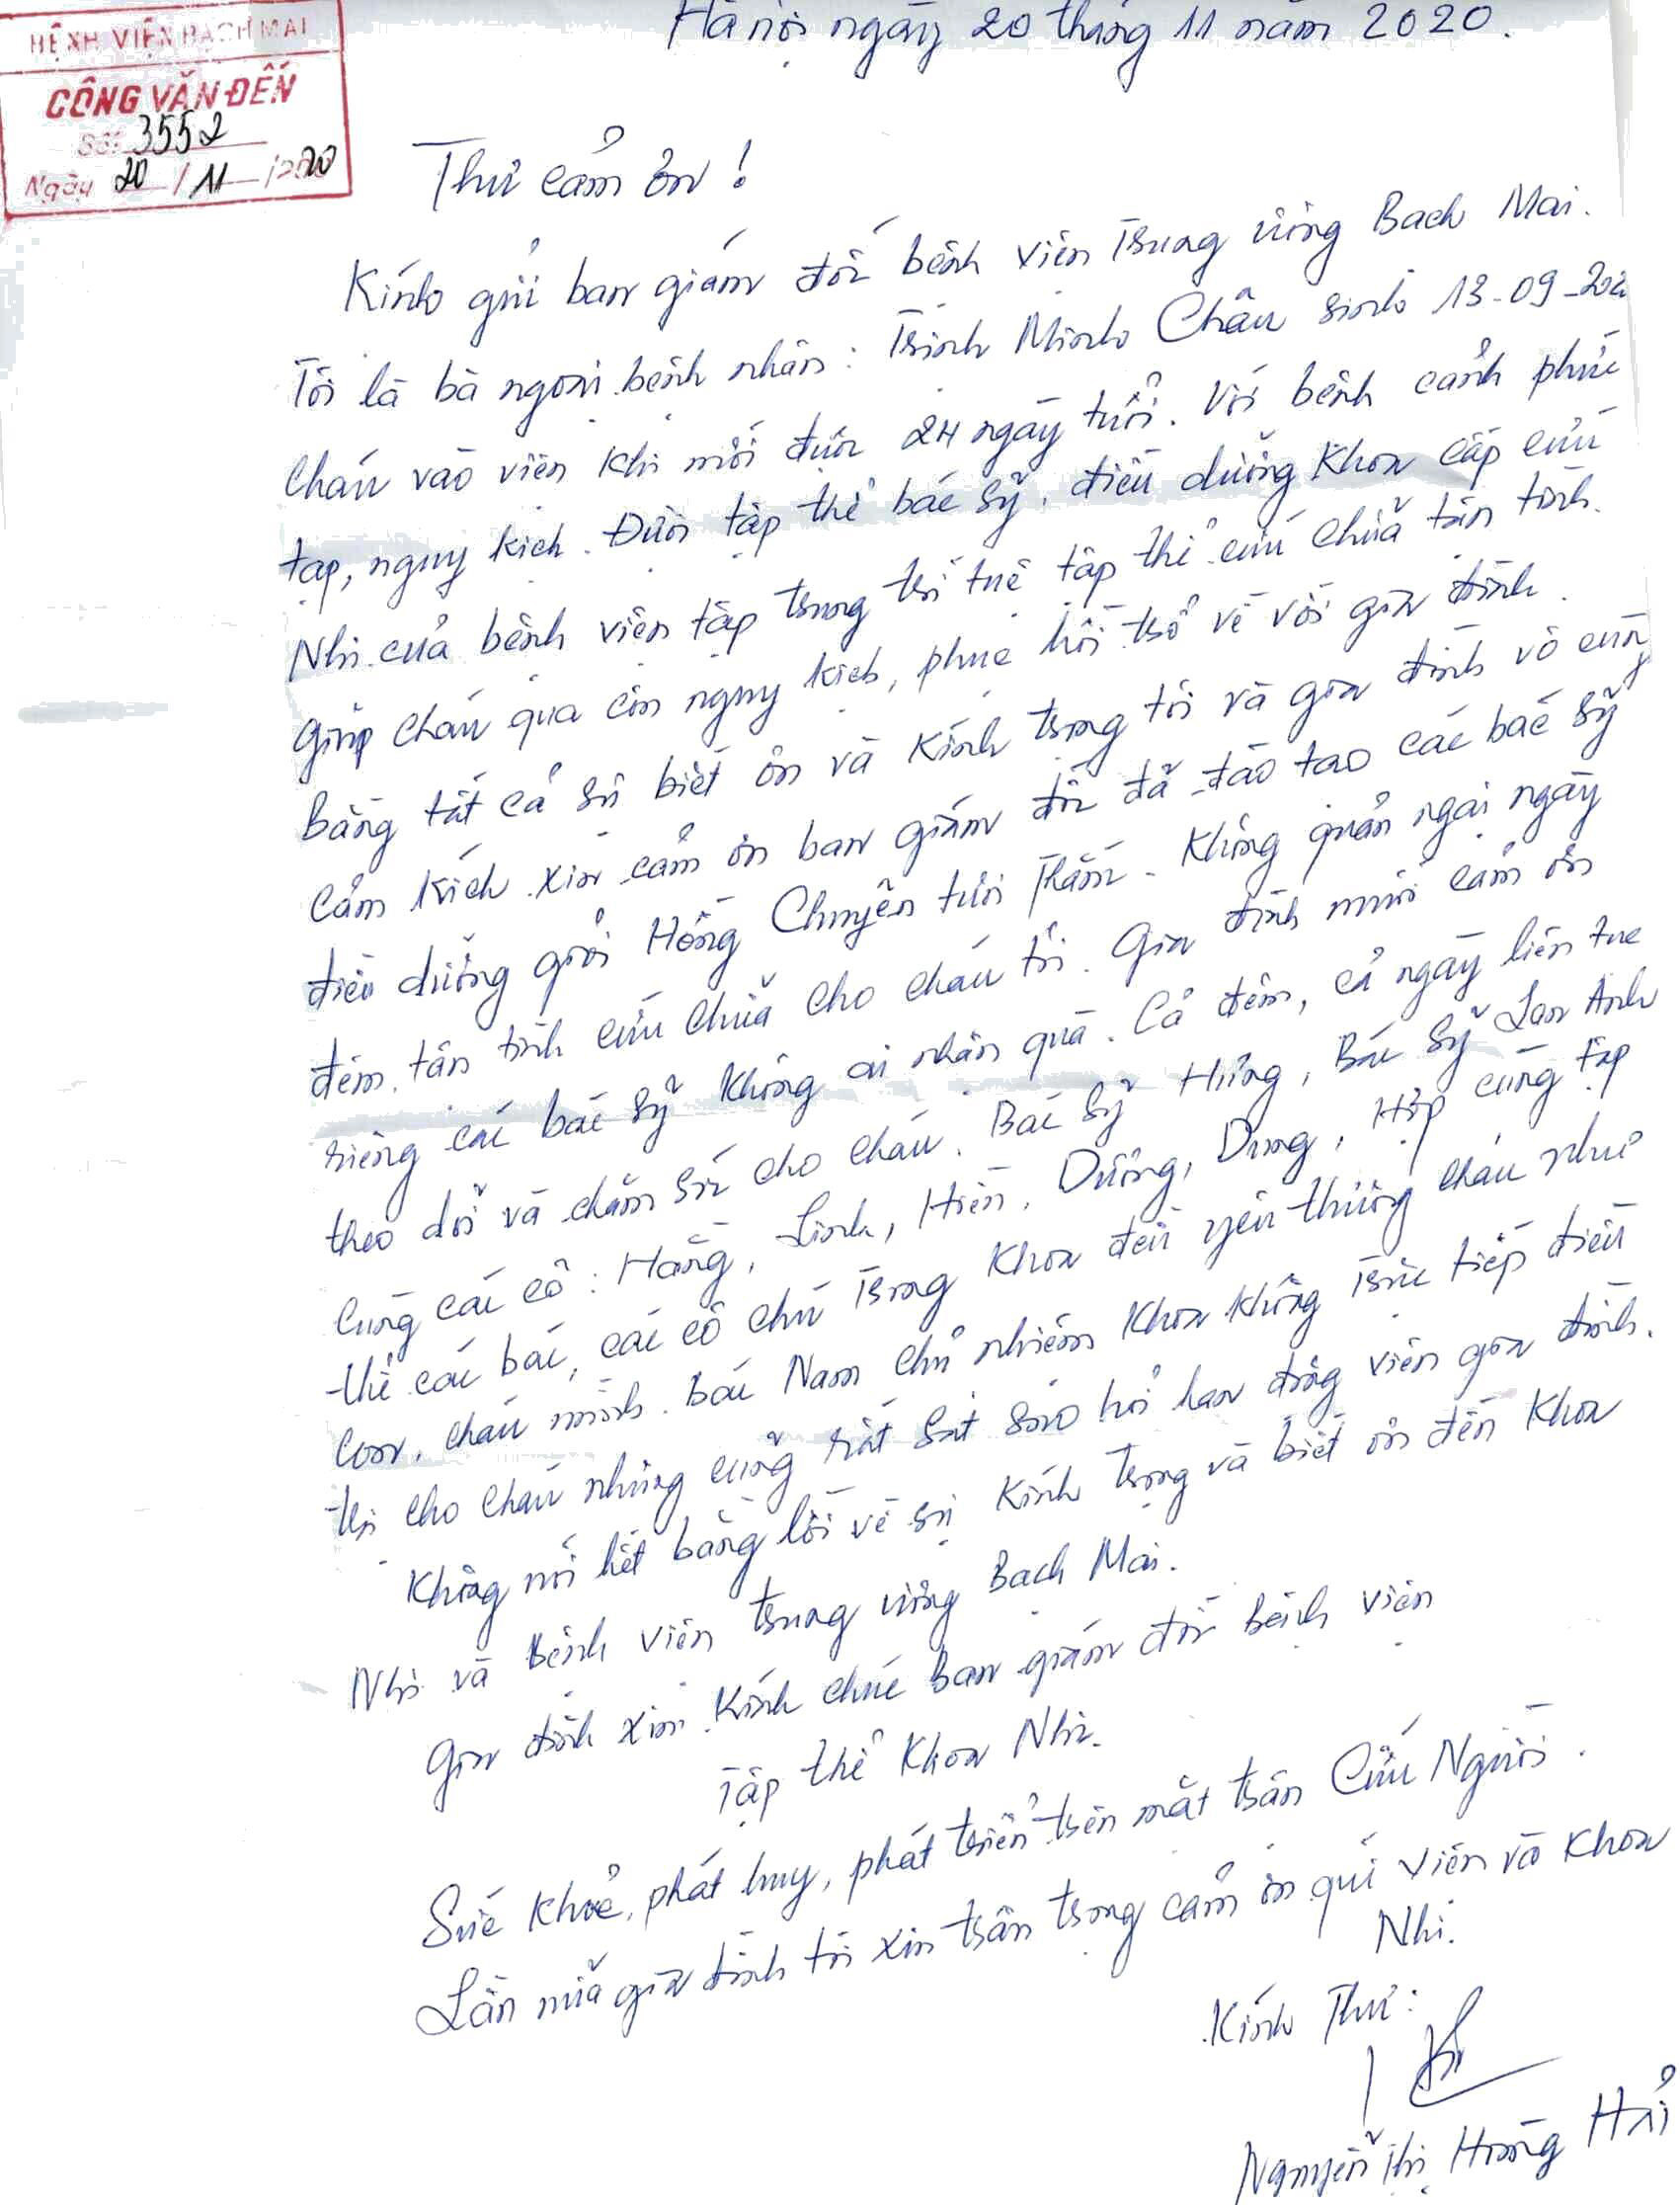 Hà nội ngày 20 tháng 11 năm 2020.
BỆNH VIỆN BẠCH MAI
CÔNG VĂN ĐẾN
Số: 3552
Ngày 20 / 11 / 2020
Thư cảm ơn !
Kính gửi ban giám đốc bệnh viện Trung ương Bạch Mai.
Tôi là bà ngoại bệnh nhân : Trịnh Minh Châu sinh 13-09-202
Cháu vào viện khi mới được 24 ngày tuổi. Với bệnh cảnh phức
tạp, nguy kịch. Được tập thể bác sỹ, điều dưỡng Khoa cấp cứu
Nhi của bệnh viện tập trung trí tuệ tập thể cứu chữa tận tình.
Giúp cháu qua cơn nguy kịch, phục hồi trở về với gia đình.
Bằng tất cả sự biết ơn và kính trọng tôi và gia đình vô cùng
cảm kích xin cảm ơn ban giám đốc đã đào tạo các bác sỹ
điều dưỡng giỏi Hồng Chuyên tươi Thắm. Không quản ngại ngày
đêm, tận tình cứu chữa cho cháu tôi. Gia đình muốn cảm ơn
riêng các bác sỹ không ai nhận quà. Cả đêm, cả ngày liên tục
theo dõi và chăm sóc cho cháu. Bác sỹ Hưng, Bác sỹ Lan Anh
Cùng các cô : Hằng, Linh, Hiền, Dương, Dung, Hợp cùng tập
thể các bác, các cô chú Trong Khoa đều yêu thương cháu như
con, cháu mình. Bác Nam chủ nhiệm Khoa không Trực tiếp điều
trị cho cháu nhưng cũng rất sát sao hỏi han động viên gia đình.
Không nói hết bằng lời về sự kính trọng và biết ơn đến Khoa
Nhi và Bệnh viện trung ương Bạch Mai.
Gia đình xin kính chúc Ban giám đốc Bệnh viện
Tập thể Khoa Nhi.
Sức khoẻ, phát huy, phát triển trên mặt trận Cứu Người.
Lần nữa gia đình tôi xin trân trọng cảm ơn quí viện và Khoa
Nhi.
Kính Thư :
Nguyễn Thị Hải